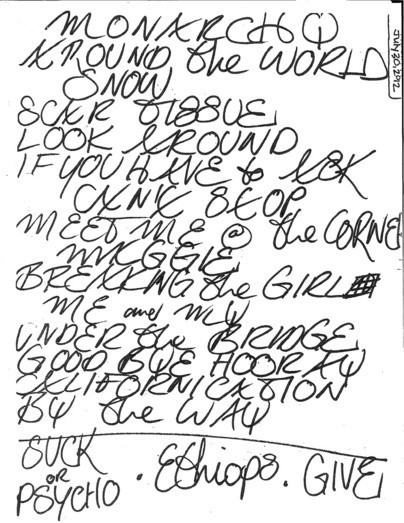 MONARCH
AROUND the WORLD
SNOW
SCAR TISSUE
LOOK AROUND
IF YOU HAVE to ASK
CANT STOP
MEET ME @ the CORNE
MAGGIE
BREAKING the GIRL
ME and MY
UNDER the BRIDGE
GOOD BYE HOORAY
CALIFORNICATION
BY the WAY
SUCK
OR
PSYCHO . Ethiops . GIVE